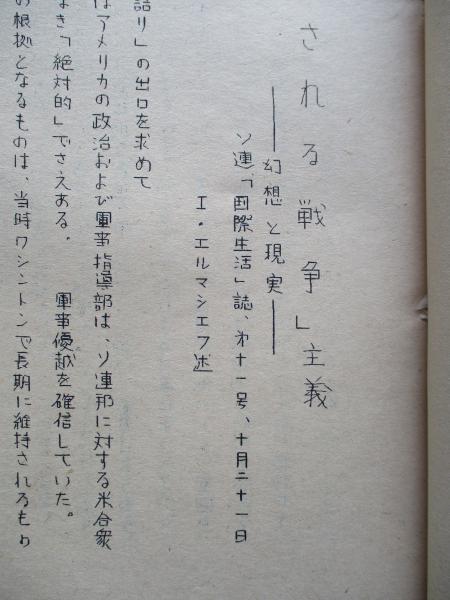 される戦争」主義
――幻想と現実――
ソ連「国際生活」誌、第十一号、十月二十一日
I・エルマシエフ述
詰り」の出口を求めて
はアメリカの政治および軍事指導部は、ソ連邦に対する米合衆
軍事優越を確信していた。
なき「絶対的」でさえある。
の根拠となるものは、当時ワシントンで長期に維持されるもり